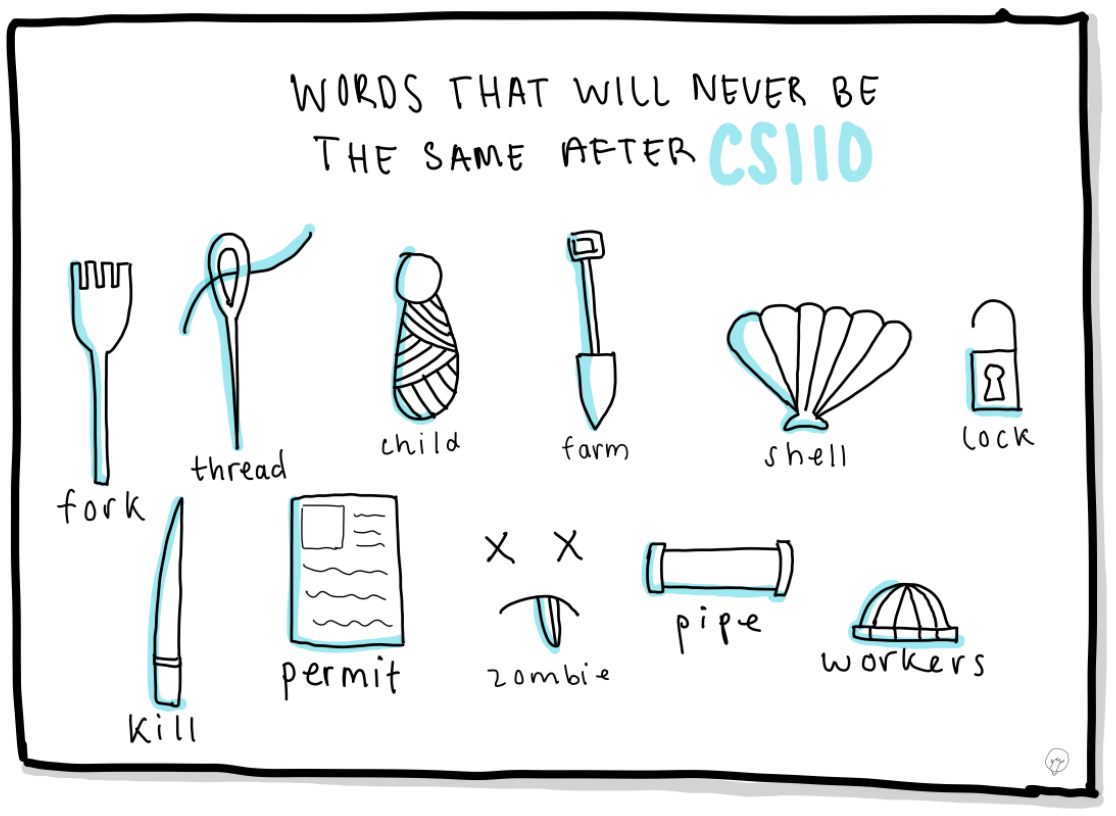 WORDS THAT WILL NEVER BE
THE SAME AFTER CS110
fork
thread
child
farm
shell
lock
kill
permit
zombie
pipe
workers